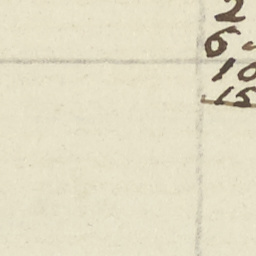 2
6
10
15